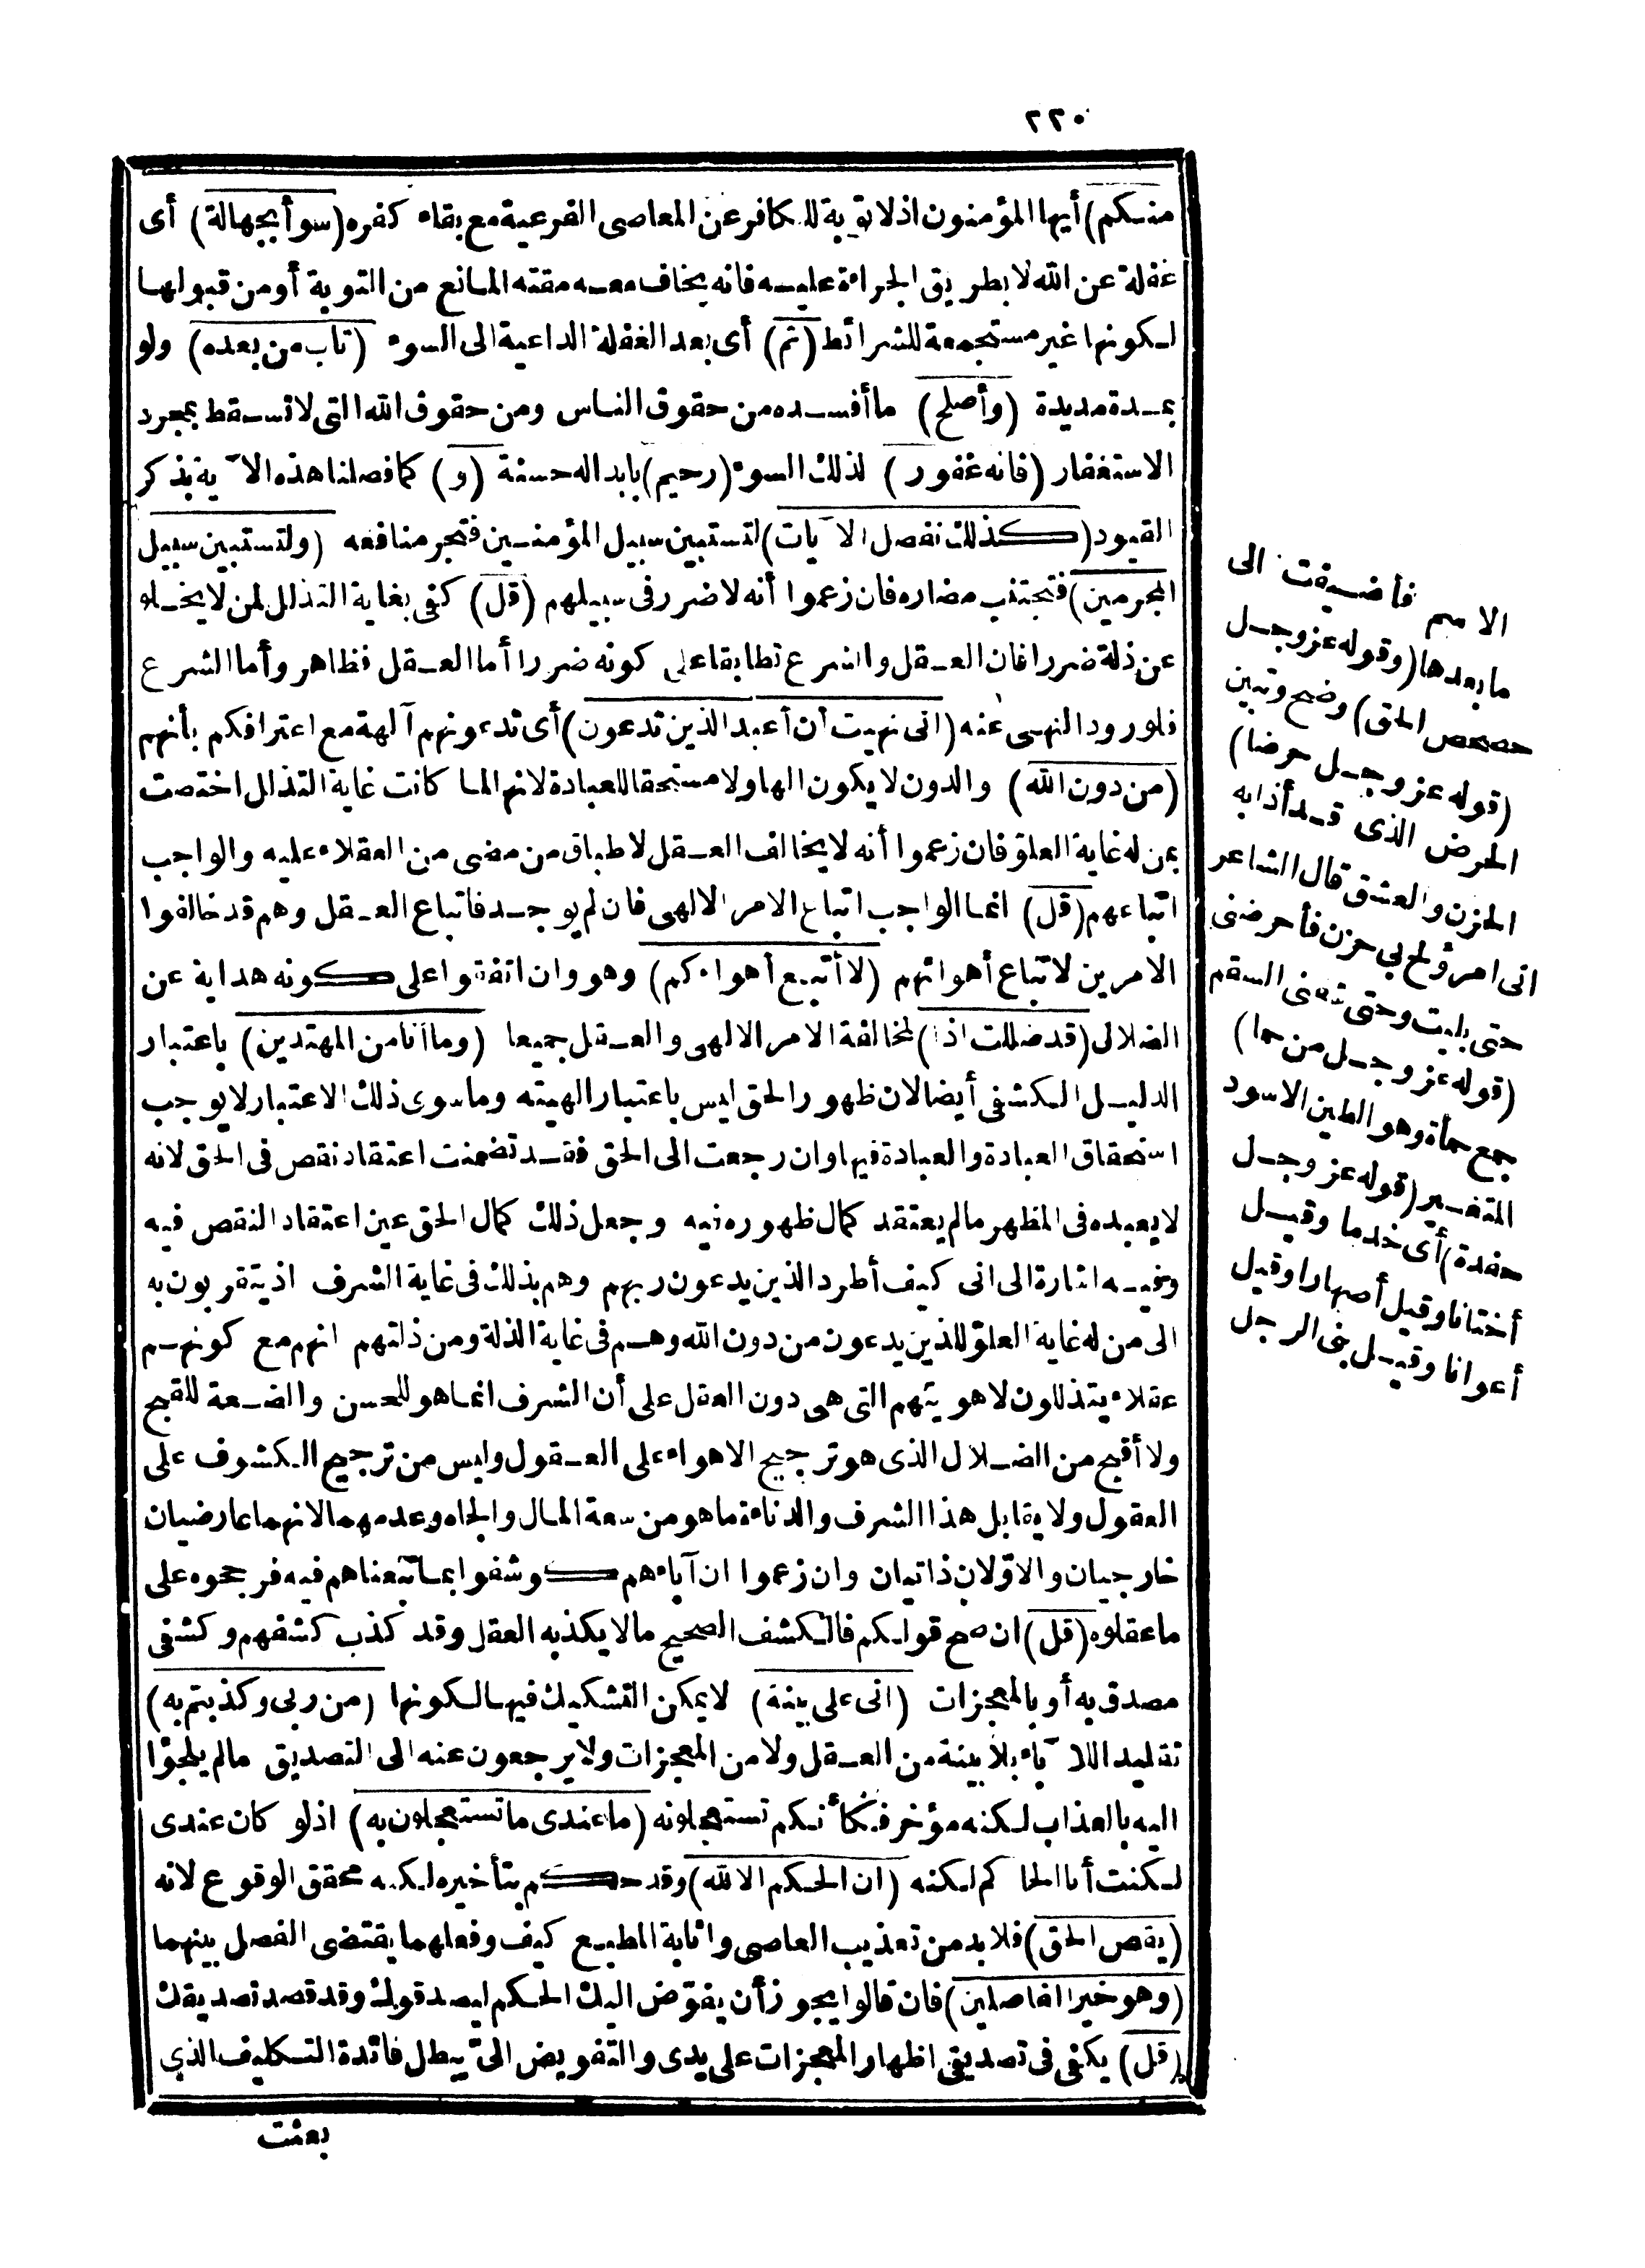 ٢٢٠
منكم) أيها المؤمنون اذ لا توبة للكافر عن المعاصى الفرعية مع بقاء كفره (سوأ بجهالة) أى
غفلة عن الله لا بطريق الجراءة عليه فانه يخاف معه مقته المانع من التوبة أو من قبولها
لكونها غير مستجمعة للشرائط (ثم) أى بعد الغفلة الداعية الى السوء (تاب من بعده) ولو
بمدة مديدة (وأصلح) ما أفسده من حقوق الناس ومن حقوق الله التى لا تسقط بمجرد
الاستغفار (فانه غفور) لذلك السوء (رحيم) بابداله حسنة (و) كما فصلنا هذه الآية بذكر
القيود (كذلك نفصل الآيات) لتستبين سبيل المؤمنين فتجر منافعه (ولتستبين سبيل
المجرمين) فتجتنب مضاره فان زعموا أنه لا ضرر فى سبيلهم (قل) كفى بغاية التذلل لمن لا يخلو
عن ذلة ضررا فان العقل والشرع تطابقا على كونه ضررا أما العقل فظاهر وأما الشرع
فلورود النهى عنه (انى نهيت أن أعبد الذين تدعون) أى تدعونهم آلهة مع اعترافكم بأنهم
(من دون الله) والدون لا يكون الها ولا مستحقا للعبادة لانها لما كانت غاية التذلل اختصت
بمن له غاية العلو فان زعموا أنه لا يخالف العقل لاطباق من مضى من العقلاء عليه والواجب
اتباعهم (قل) انما الواجب اتباع الامر الالهى فان لم يوجد فاتباع العقل وهم قد خالفوا
الامرين لاتباع أهوائهم (لا أتبع أهواءكم) وهو وان اتفقوا على كونه هداية عن
الضلال (قد ضللت اذا) لمخالفة الامر الالهى والعقل جميعا (وما أنا من المهتدين) باعتبار
الدليل الكشفى أيضا لان ظهور الحق ليس باعتبار الهيته وما سوى ذلك الاعتبار لا يوجب
استحقاق العبادة والعبادة فيها وان رجعت الى الحق فقد تضمنت اعتقاد نقص فى الحق لانه
لا يعبده فى المظهر ما لم يعتقد كمال ظهوره فيه وجعل ذلك كمال الحق عين اعتقاد النقص فيه
وفيه اشارة الى انى كيف أطرد الذين يدعون ربهم وهم بذلك فى غاية الشرف اذ يتقربون به
الى من له غاية العلو للذين يدعون من دون الله وهم فى غاية الذلة ومن ذلتهم انهم مع كونهم
عقلاء يتذللون لاهويتهم التى هى دون العقل على أن الشرف انما هو للحسن والضعة للقبح
ولا أقبح من الضلال الذى هو ترجيح الاهواء على العقول وليس من ترجيح الكشوف على
العقول ولا يقابل هذا الشرف والدناءة ما هو من سعة المال والجاه وعدمهما لانهما عارضيان
خارجيان والاولان ذاتيان وان زعموا ان آباءهم كوشفوا بما تبعناهم فيه فرجحوه على
ما عقلوه (قل) ان صح قولكم فالكشف الصحيح ما لا يكذبه العقل وقد كذب كشفهم وكشفى
مصدق به أو بالمعجزات (انى على بينة) لا يمكن التشكيك فيها لكونها (من ربى وكذبتم به)
تقليد اللآباء بلا بينة من العقل ولا من المعجزات ولا يرجعون عنه الى التصديق ما لم يلجؤا
اليه بالعذاب لكنه مؤخر فكأنكم تستعجلونه (ما عندى ما تستعجلون به) اذ لو كان عندى
لكنت أنا الحاكم لكنه (ان الحكم الا لله) وقد حكم بتأخيره لكنه محقق الوقوع لانه
(يقص الحق) فلا بد من تعذيب العاصى واثابة المطيع كيف وفعلهما يقتضى الفصل بينهما
(وهو خير الفاصلين) فان قالوا يجوز أن يفوض اليك الحكم ليصدقولك وقد قصد تصديقك
(قل) يكفى فى تصديقى اظهار المعجزات على يدى والتفويض الى يبطل فائدة التكليف الذى
بعثت
الاسم فأضيفت الى
ما بعدها (وقوله عز وجل
حصحص الحق) وضح وتبين
(قوله عز وجل حرضا)
الحرض الذى قد أذابه
الحزن والعشق قال الشاعر
انى امرؤ لج بى حزن فأحرضنى
حتى بليت وحتى شفنى السقم
(قوله عز وجل من حما)
جمع حمأة وهو الطين الاسود
المتغير (قوله عز وجل
حفدة) أى خدما وقيل
أختانا وقيل أصهارا وقيل
أعوانا وقيل بنى الرجل